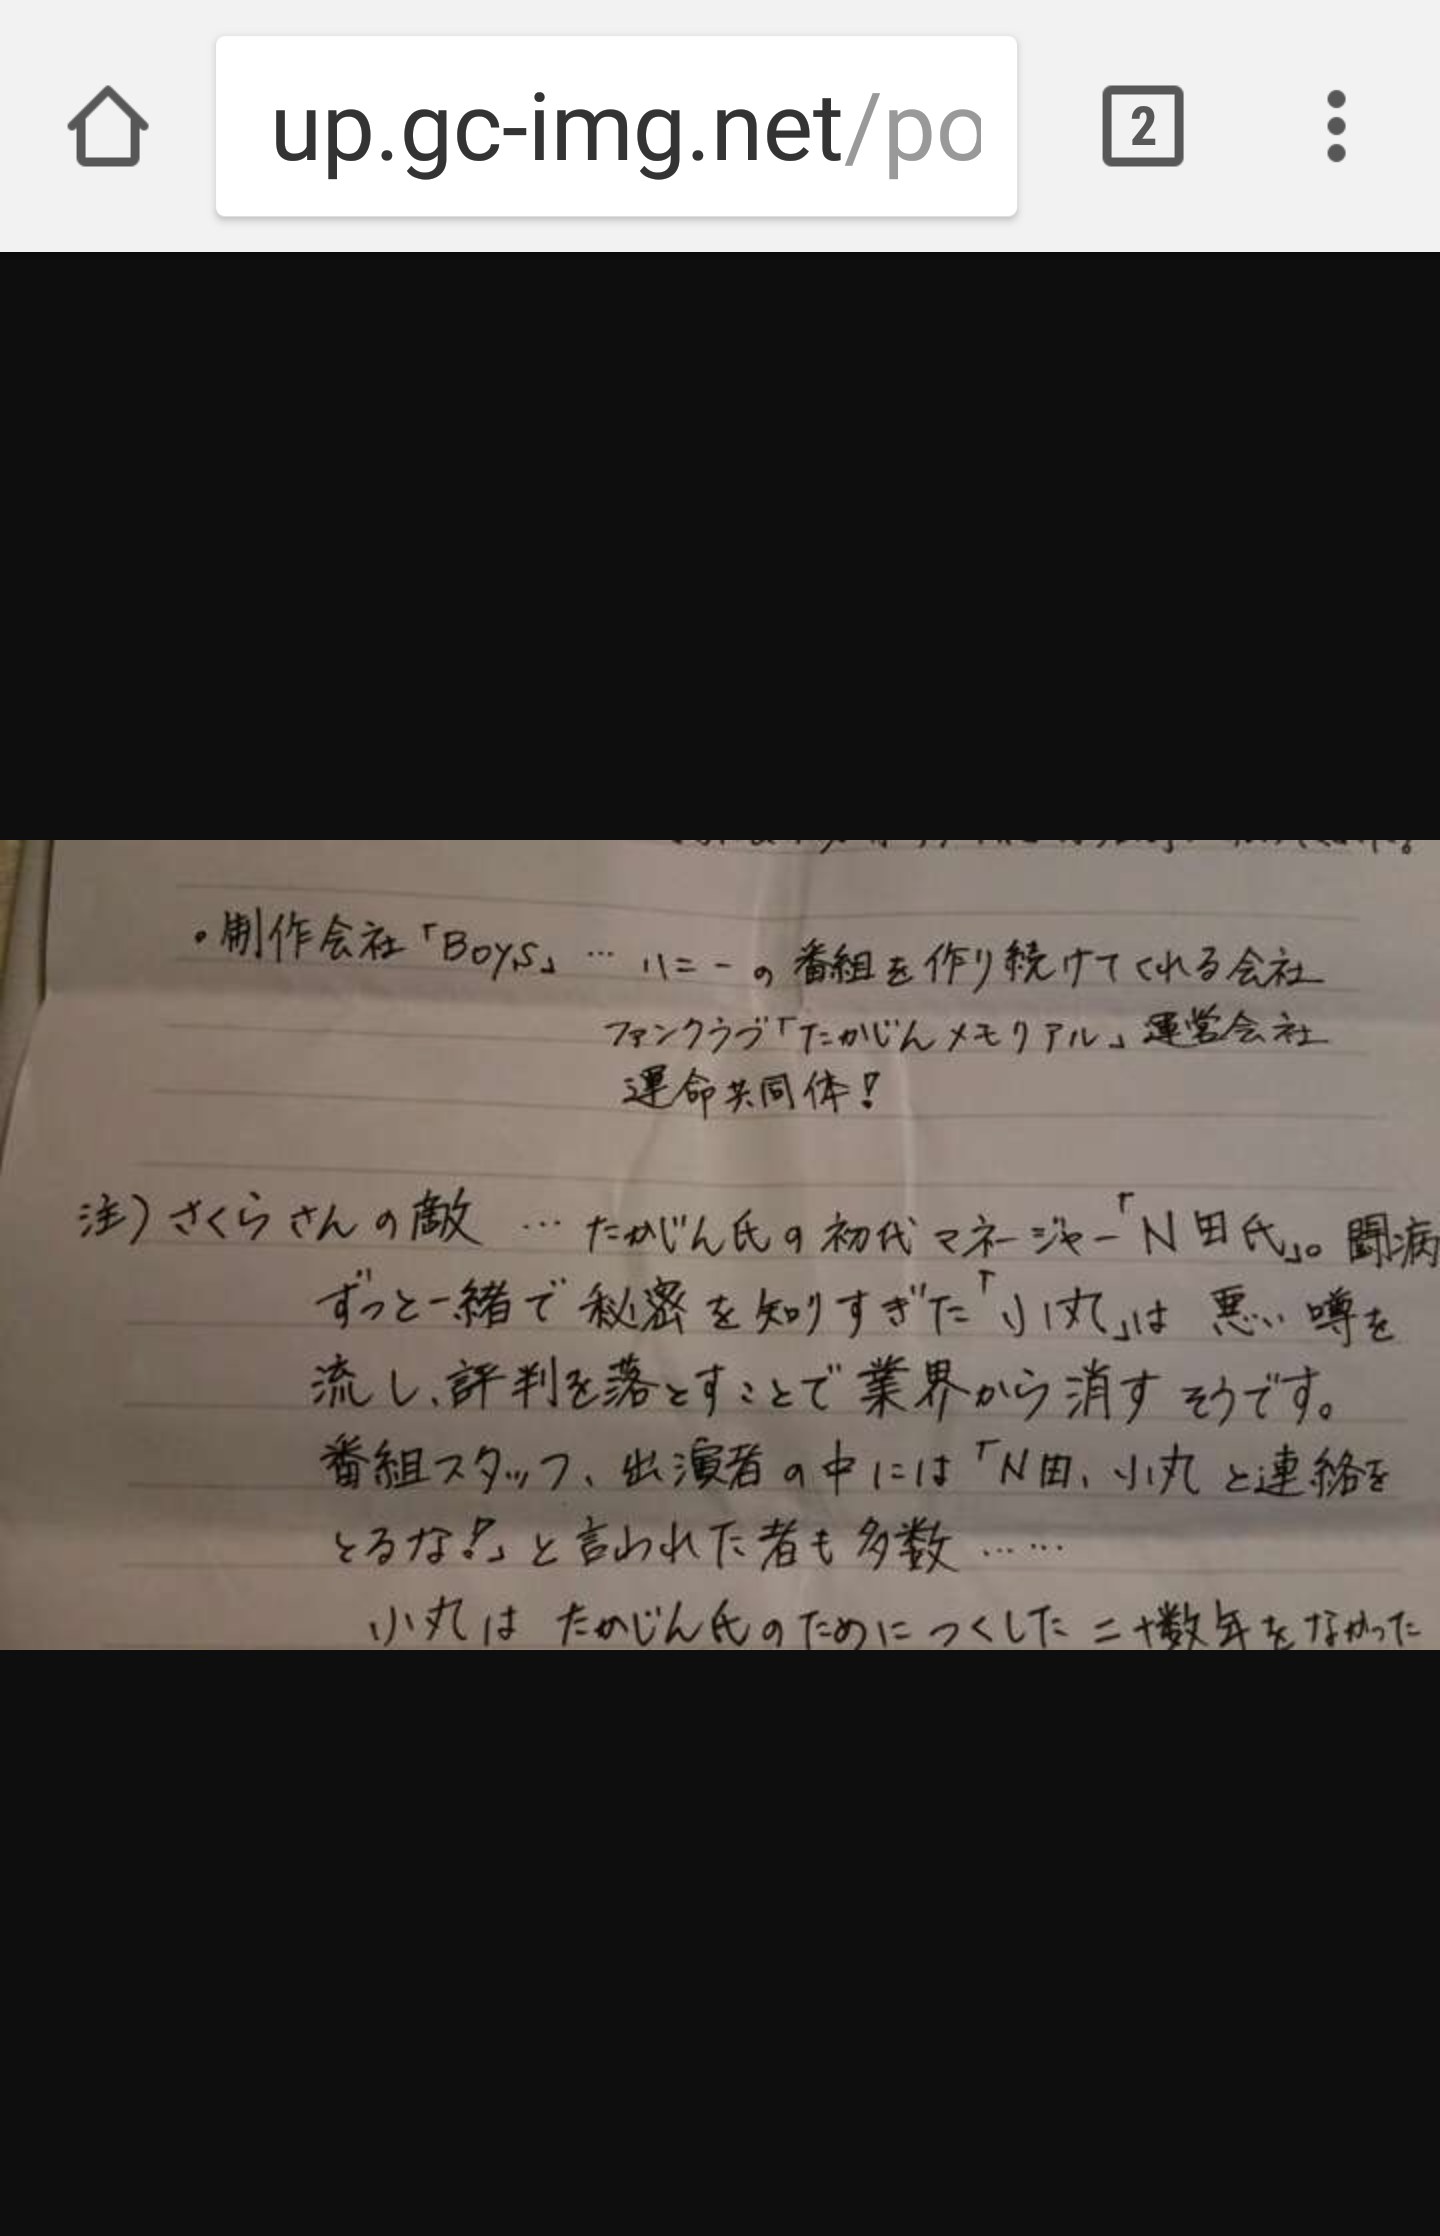 up.gc-img.net/po
2
・制作会社「Boys」… ハニーの番組を作り続けてくれる会社
ファンクラブ「たかじんメモリアル」運営会社
運命共同体!
注)さくらさんの敵 … たかじん氏の初代マネージャー「N田氏」。闘病
ずっと一緒で秘密を知りすぎた「小丸」は 悪い噂を
流し、評判を落とすことで業界から消すそうです。
番組スタッフ、出演者の中には「N田、小丸と連絡を
とるな!」と言われた者も多数……
小丸は たかじん氏のためにつくした二十数年をなかった